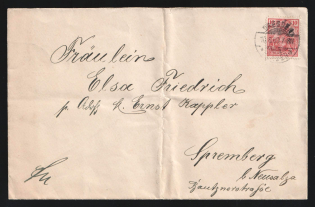 Fräulein
Elsa Friedrich
p. Adr. H. Ernst Kappler
Spremberg
b. Neusalza
Bautznerstraße